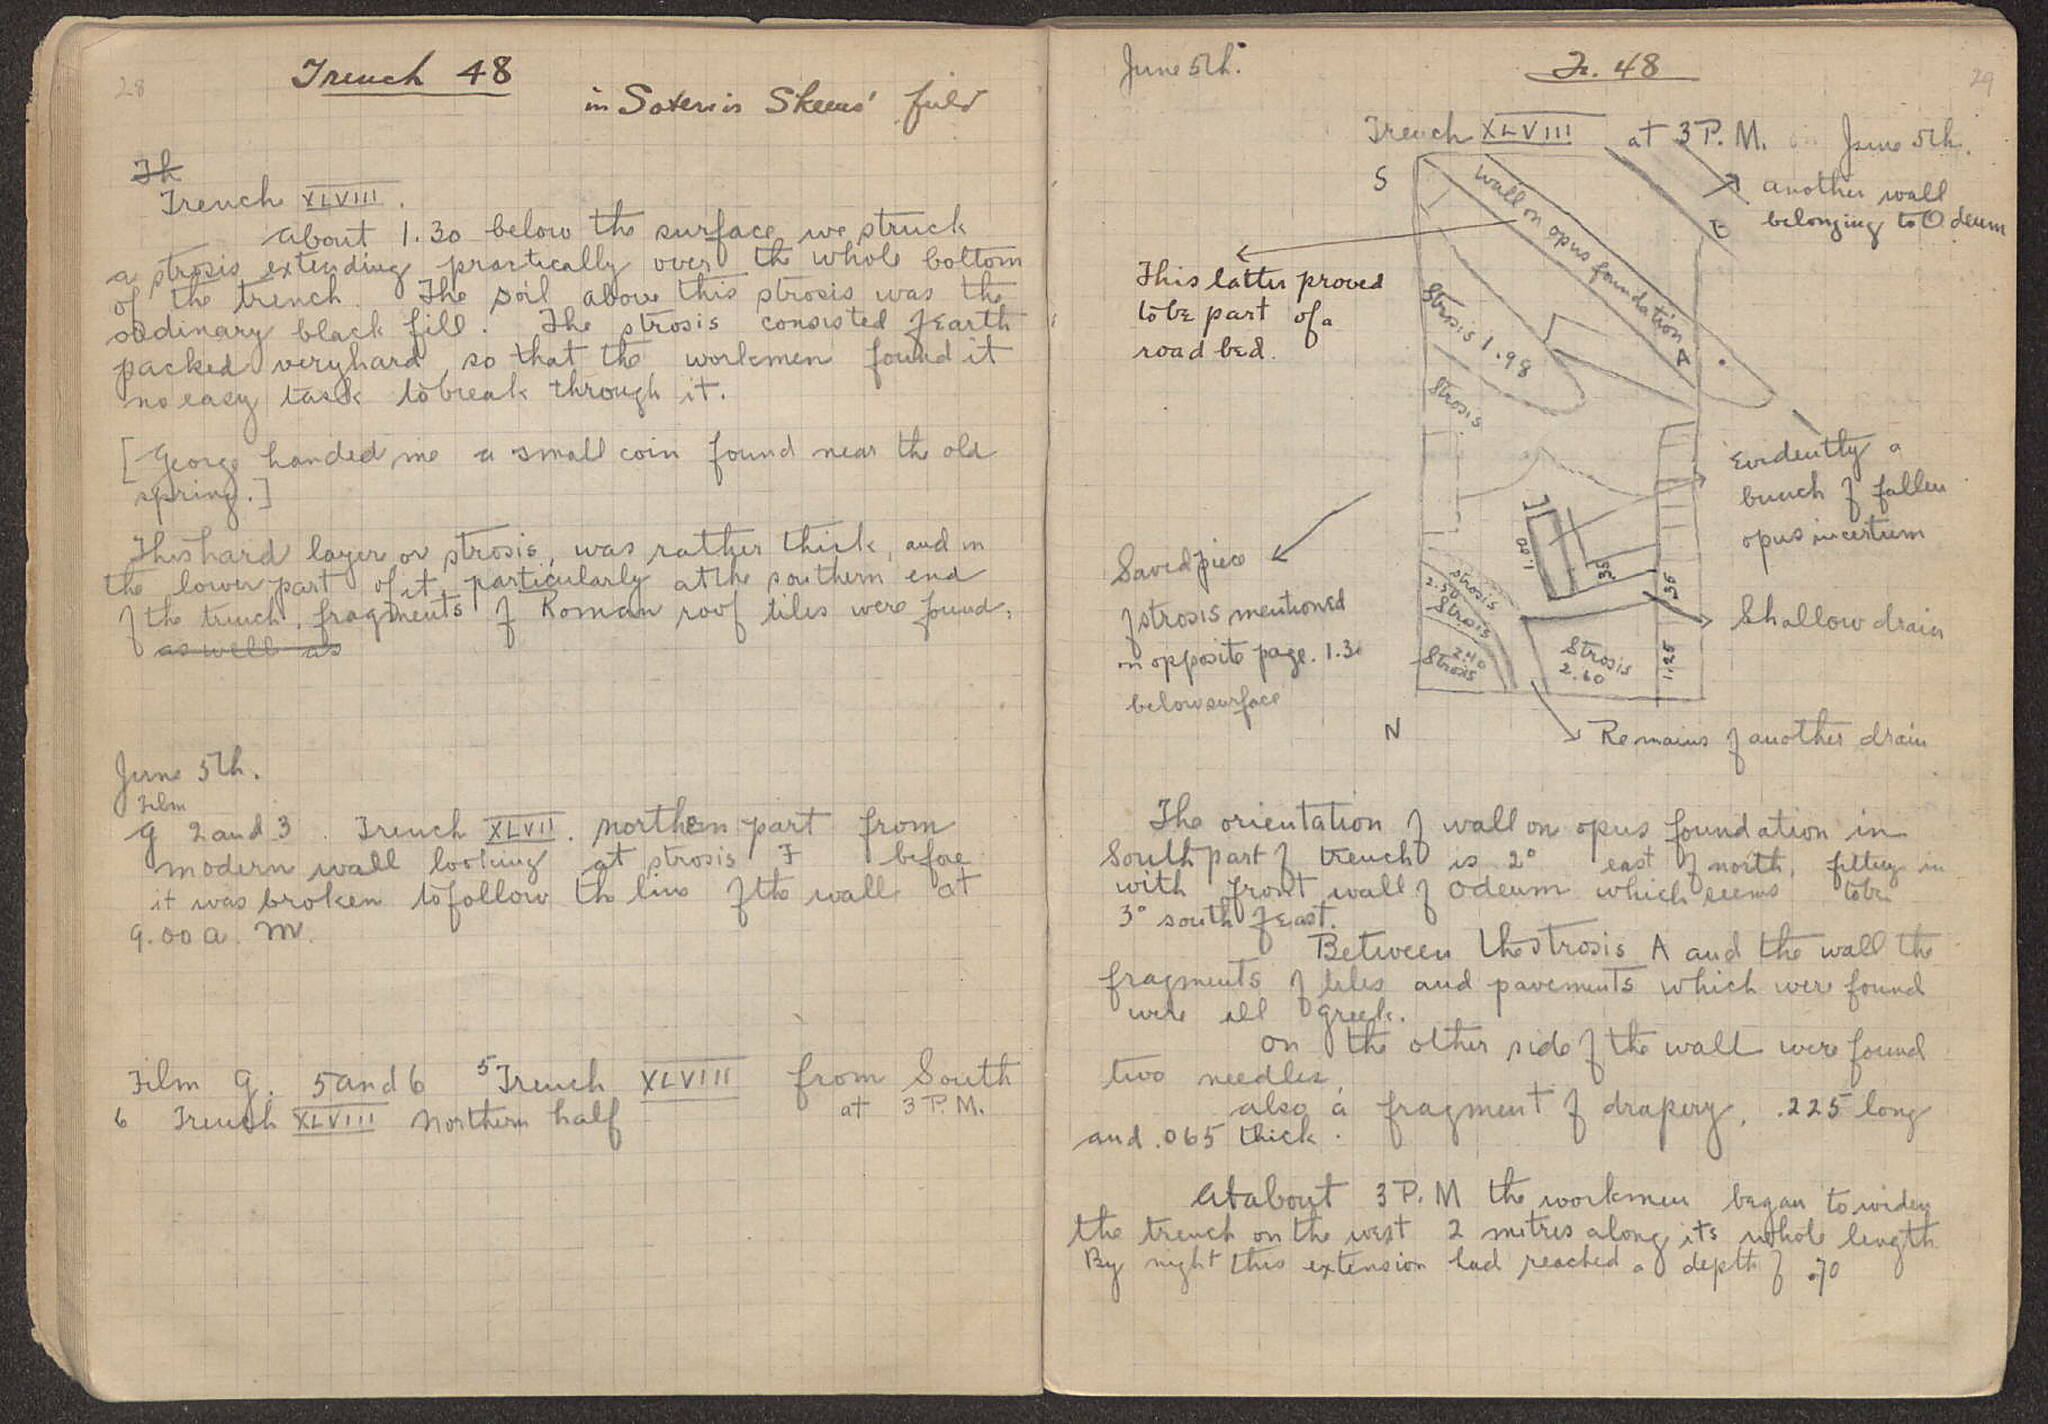 28
Trench 48
in Soteris Skeens' field
Th
Trench XLVIII.
About 1.30 below the surface we struck
a strosis extending practically over the whole bottom
of the trench. The soil above this strosis was the
ordinary black fill. The strosis consisted of earth
packed very hard so that the workmen found it
no easy task to break through it.
[George handed me a small coin found near the old
spring.]
This hard layer or strosis, was rather thick, and in
the lower part of it particularly at the southern end
of the trench, fragments of Roman roof tiles were found.
as well as
June 5th.
Film
9 2 and 3. Trench XLVII. northern part from
modern wall looking at strosis F before
it was broken to follow the line of the wall at
9.00 a. m.
Film 9. 5 and 6 5 Trench XLVIII from South
at 3 P.M.
6 Trench XLVIII Northern half
June 5th.
Tr. 48
29
Trench XLVIII at 3 P.M. on June 5th.
S
another wall
belonging to Odeum
B
Wall on opus foundation
A
This latter proved
to be part of a
road bed.
Strosis 1.98
Strosis
Evidently a
bunch of fallen
opus incertum
1.00
.35
.35
Saved piece
of strosis mentioned
on opposite page. 1.30
below surface
strosis
2.30
Strosis
2.40
Strosis
Strosis
2.60
1.25
Shallow drain
N
Remains of another drain
The orientation of wall on opus foundation in
South part of trench is 2° east of north, fitting in
with front wall of Odeum which seems to be
3° south of east.
Between the strosis A and the wall the
fragments of tiles and pavements which were found
were all Greek.
On the other side of the wall were found
two needles,
also a fragment of drapery, .225 long
and .065 thick.
At about 3 P.M the workmen began to widen
the trench on the west 2 metres along its whole length
By night this extension had reached a depth of .70